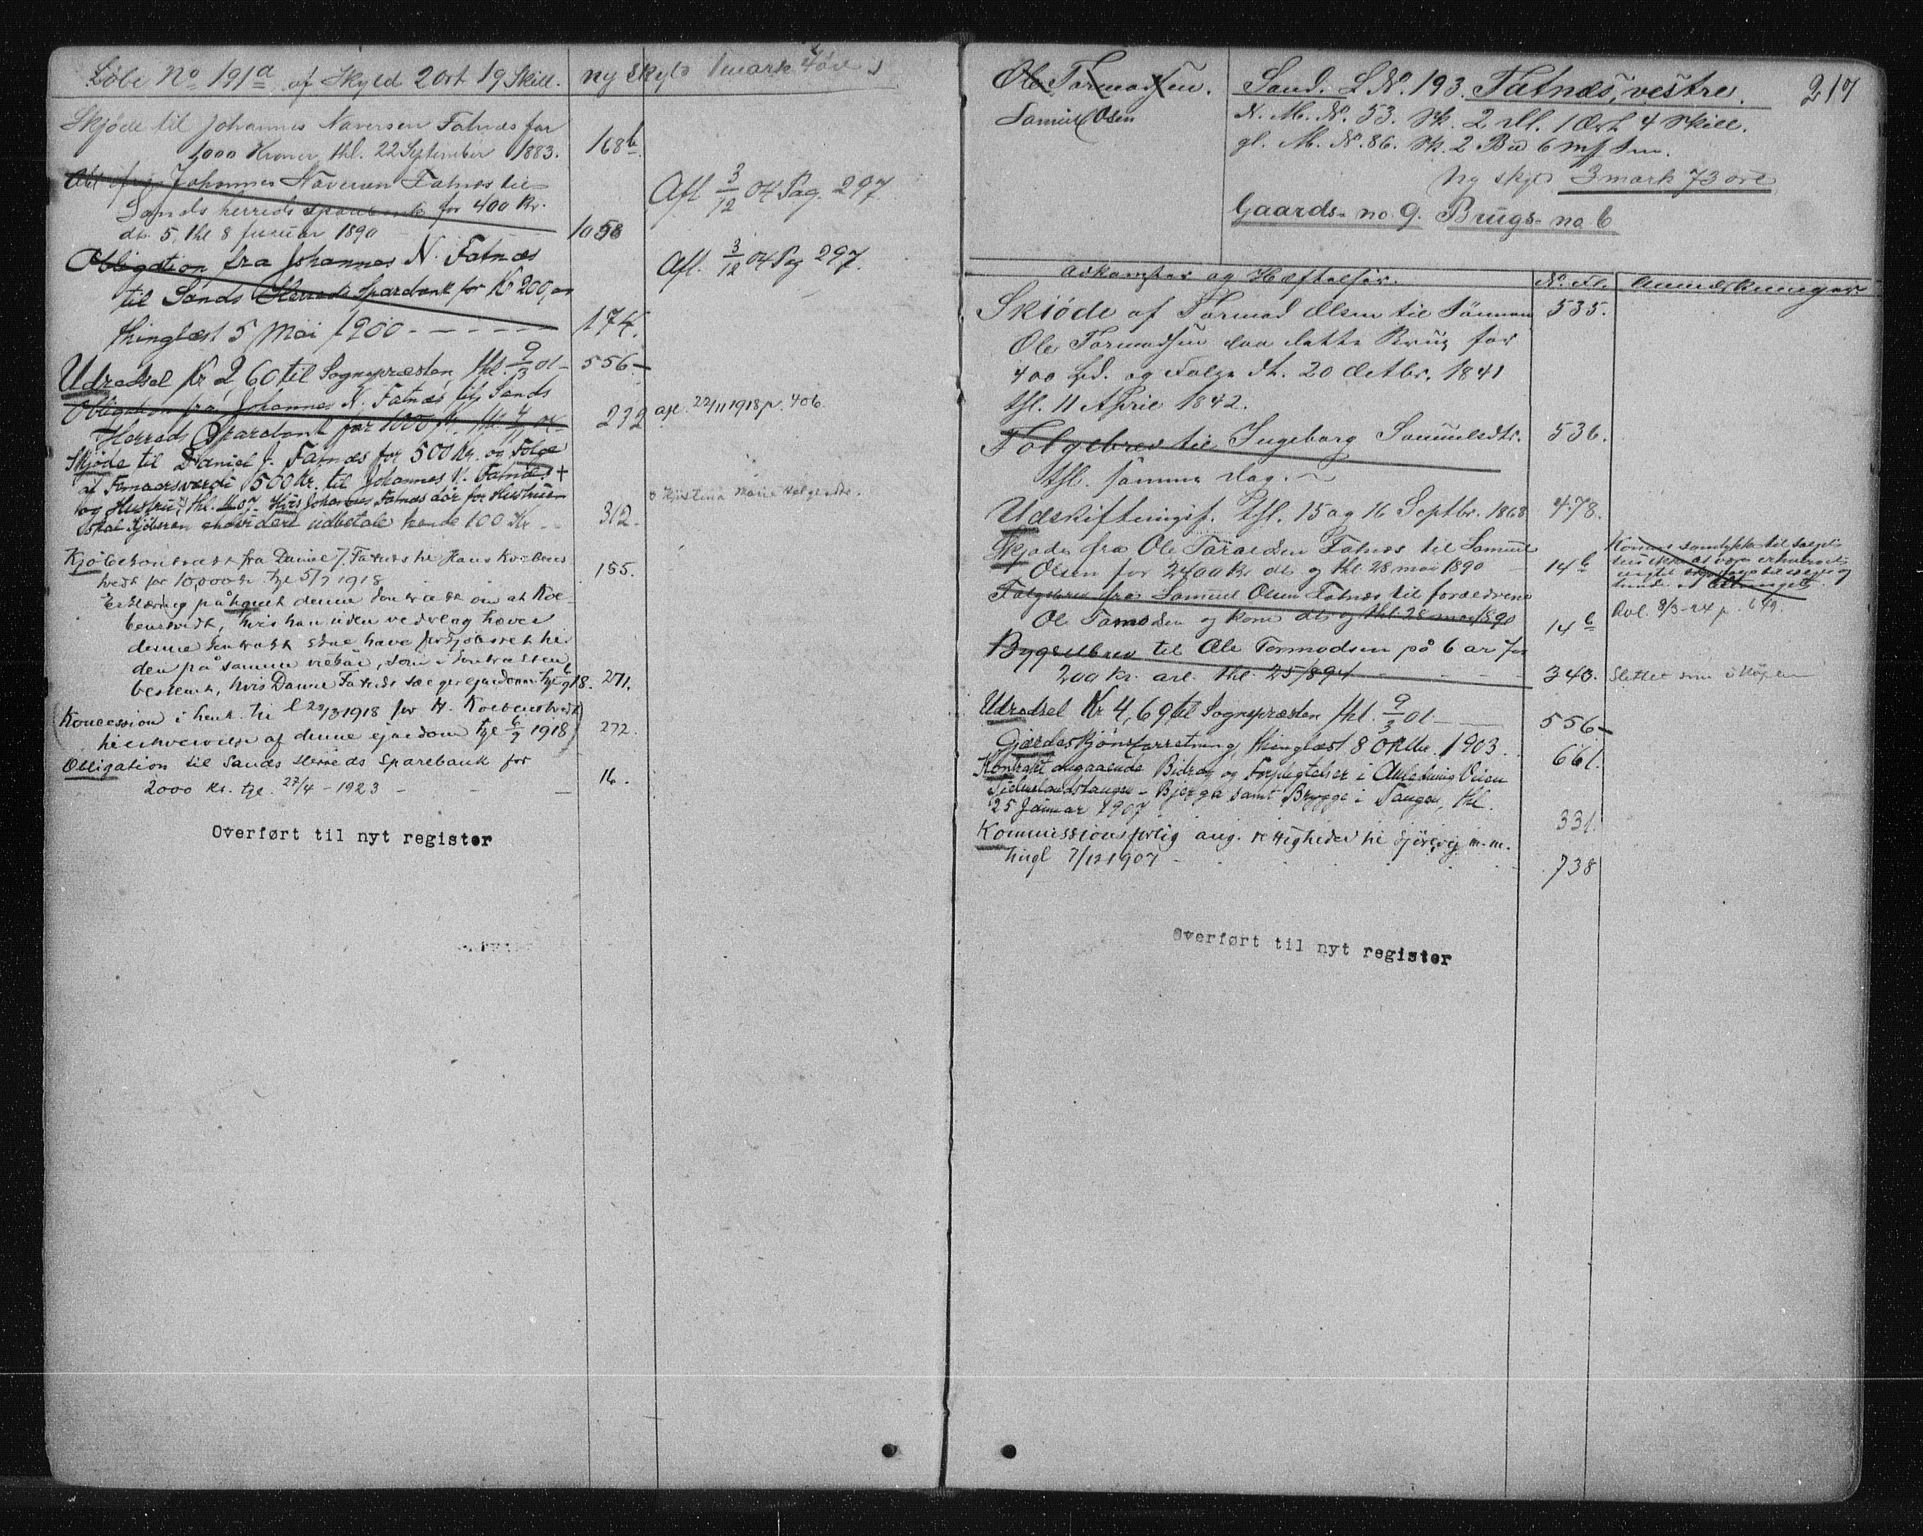 Løbe No 191a af Skyld 2 ort 19 Skill. ny skyld 1 mark 4 øre
Skjøde til Johannes Naversen Fatnæs for
1000 Kroner, thl. 22 September 1883. 168b
Obl. fra Johannes Naversen Fatnes til
Sands herreds sparebank for 400 Kr.
dt. 5, thl 8 Januar 1890 1058
Afl 3/12 04 Pag. 297
Obligation fra Johannes N. Fatnæs
til Sands Herreds Sparebank for Kr 200,00
thinglæst 5 Mai 1900 - - - - - 174.
Afl. 3/12 04 Pag 297.
Udredsel Kr 2,60 til Sognepræsten thl. 9/3 01 - 556 -
Obligation fra Johannes N. Fatnæs til Sands
Herreds Sparebank for 1000 Kr. thl. 292
afl. 22/11 1918 p. 406
Skjøde til Daniel J. Fatnæs for 500 Kr. og Folge
af Femaarsværdi 500 Kr. til Johannes N. Fatnæs +
og Hustru, thl. Hvis Johannes Fatnæs dør før Hustruen
skal Kjøberen udbetale hende 100 Kr - - 312.
o Kjistina Marie Helgesdtr.
Kjøbekontrakt fra Daniel J. Fatnes til Hans Koebens
tvedt for 10,000 kr tgl 5/7 1918 155.
Erklæring på denne kontrakt om at Koe-
benstvedt, hvis han uden vederlag hæver
denne kontrakt skal have forkjøbsret til
den på samme vilkår, som i kontrakten
bestemt, hvis Daniel Fatnes sælger ejendommen tgl 6/9 18. 271.
(Koncession i henh. til l 22/3 1918 for H. Koebenstvedt
til erhvervelse af denne ejendom tgl 6/9 1918) 272.
Obligation til Sands Herreds Sparebank for
2000 kr. tgl. 27/4 - 1923 - - - 16.
Overført til nyt register
Ole Tarmodsen.
Samuel Olsen
Sand. L. No. 193. Fatnæs, vestre. 217
N. M. No. 53. Sk. 2 Dl. 1 Ort 4 Skill.
gl. M. No. 86. Sk. 2 Bud 6 mf Srn.
Ny skyld 3 mark 73 øre
Gaards-no 9. Brugs-no 6
Adkomster og Hæftelser. No. Fl. Anmærkninger.
Skiøde af Tarmod Olsen til Sønnen 535.
Ole Tarmodsen paa dette Brug for
400 Spd. og Folge dt. 20 Octbr. 1841
thl. 11 April 1842.
Folgebrev til Ingeborg Samuelsdtr. 536.
thl. samme dag.
Udskiftningsf. thl. 15 og 16 Septbr. 1868 478.
Skjøde fra Ole Taraldsen Fatnes til Samuel
Olsen for 2400 Kr dt og thl 28 mai 1890 - 14b
Folgebrev fra Samuel Olsen Fatnes til forældrene
Ole Tarmodsen og kone dt og thl 28 mai 1890 14b
Avl. 8/3-24 p. 649.
Bygselbrev til Ole Tormodsen på 6 ar for
200 kr. arl. thl. 25/8 94 - - - - 340. Slettet som udløpen
Udredsel Kr 4,69 til Sognepræsten thl. 9/3 01 - - 556 -
Gjærdeskjønsforretning, thinglæst 8 Oktbr. 1903. 661.
Kontrakt angaaende Bidrag og Forpligtelser i Anledning Veien
Tjelmelandstangen - Bjerga samt Brygge i Tangen, thl.
25 Januar 1907 331.
Kommissionsforlig ang. rettigheder til sjøvej m.m.
tingl 7/12 1907 - 738
Overført til nyt register